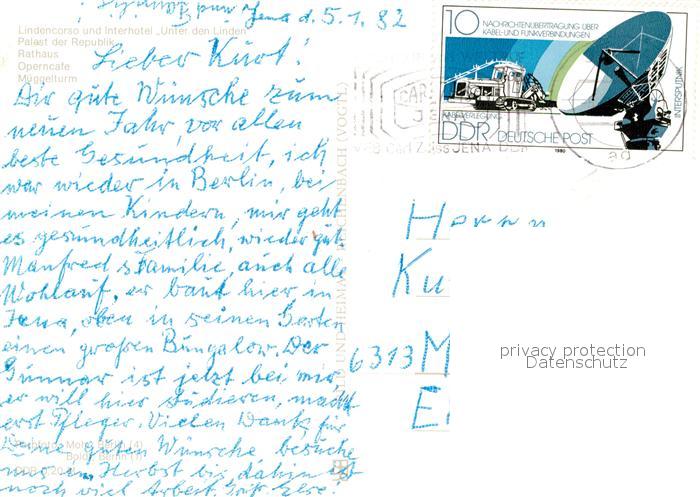 Jena d. 5.1.82
Lindencorso und Interhotel „Unter den Linden"
Palast der Republik
Rathaus
Operncafe
Müggelturm
Lieber Kurt!
Dir gute Wünsche zum
neuen Jahr, vor allen
beste Gesundheit, ich
war wieder in Berlin, bei
meinen Kindern, mir geht
es gesundheitlich, wieder gut
Manfred s Familie, auch alle
Wohlauf, er baut hier in
Jena, oben in seinen Garten
einen großen Bungalow. Der
Gunnar ist jetzt bei mir
er will hier studieren, macht
erst Pfleger. Vielen Dank für
Deine guten Wünsche, besuche
uns im Herbst bis dahin ist
noch viel Arbeit. Grüß Else!
10 NACHRICHTENÜBERTRAGUNG ÜBER
KABEL- UND FUNKVERBINDUNGEN
INTERSPUTNIK
KABELVERLEGUNG
DDR DEUTSCHE POST
1980
JENA DDR
Herrn
Ku
6313 M
E
privacy protection
Datenschutz